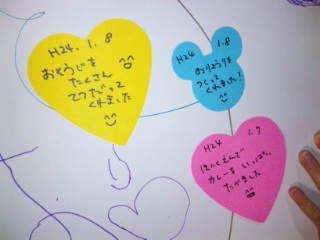 H24. 1. 8
おそうじを
たくさん
てつだって
くれました
H24. 1.8
おりょうりを
つくって
くれました!
H24 1.7
ほいくえんで
カレーを いっぱい
たべました